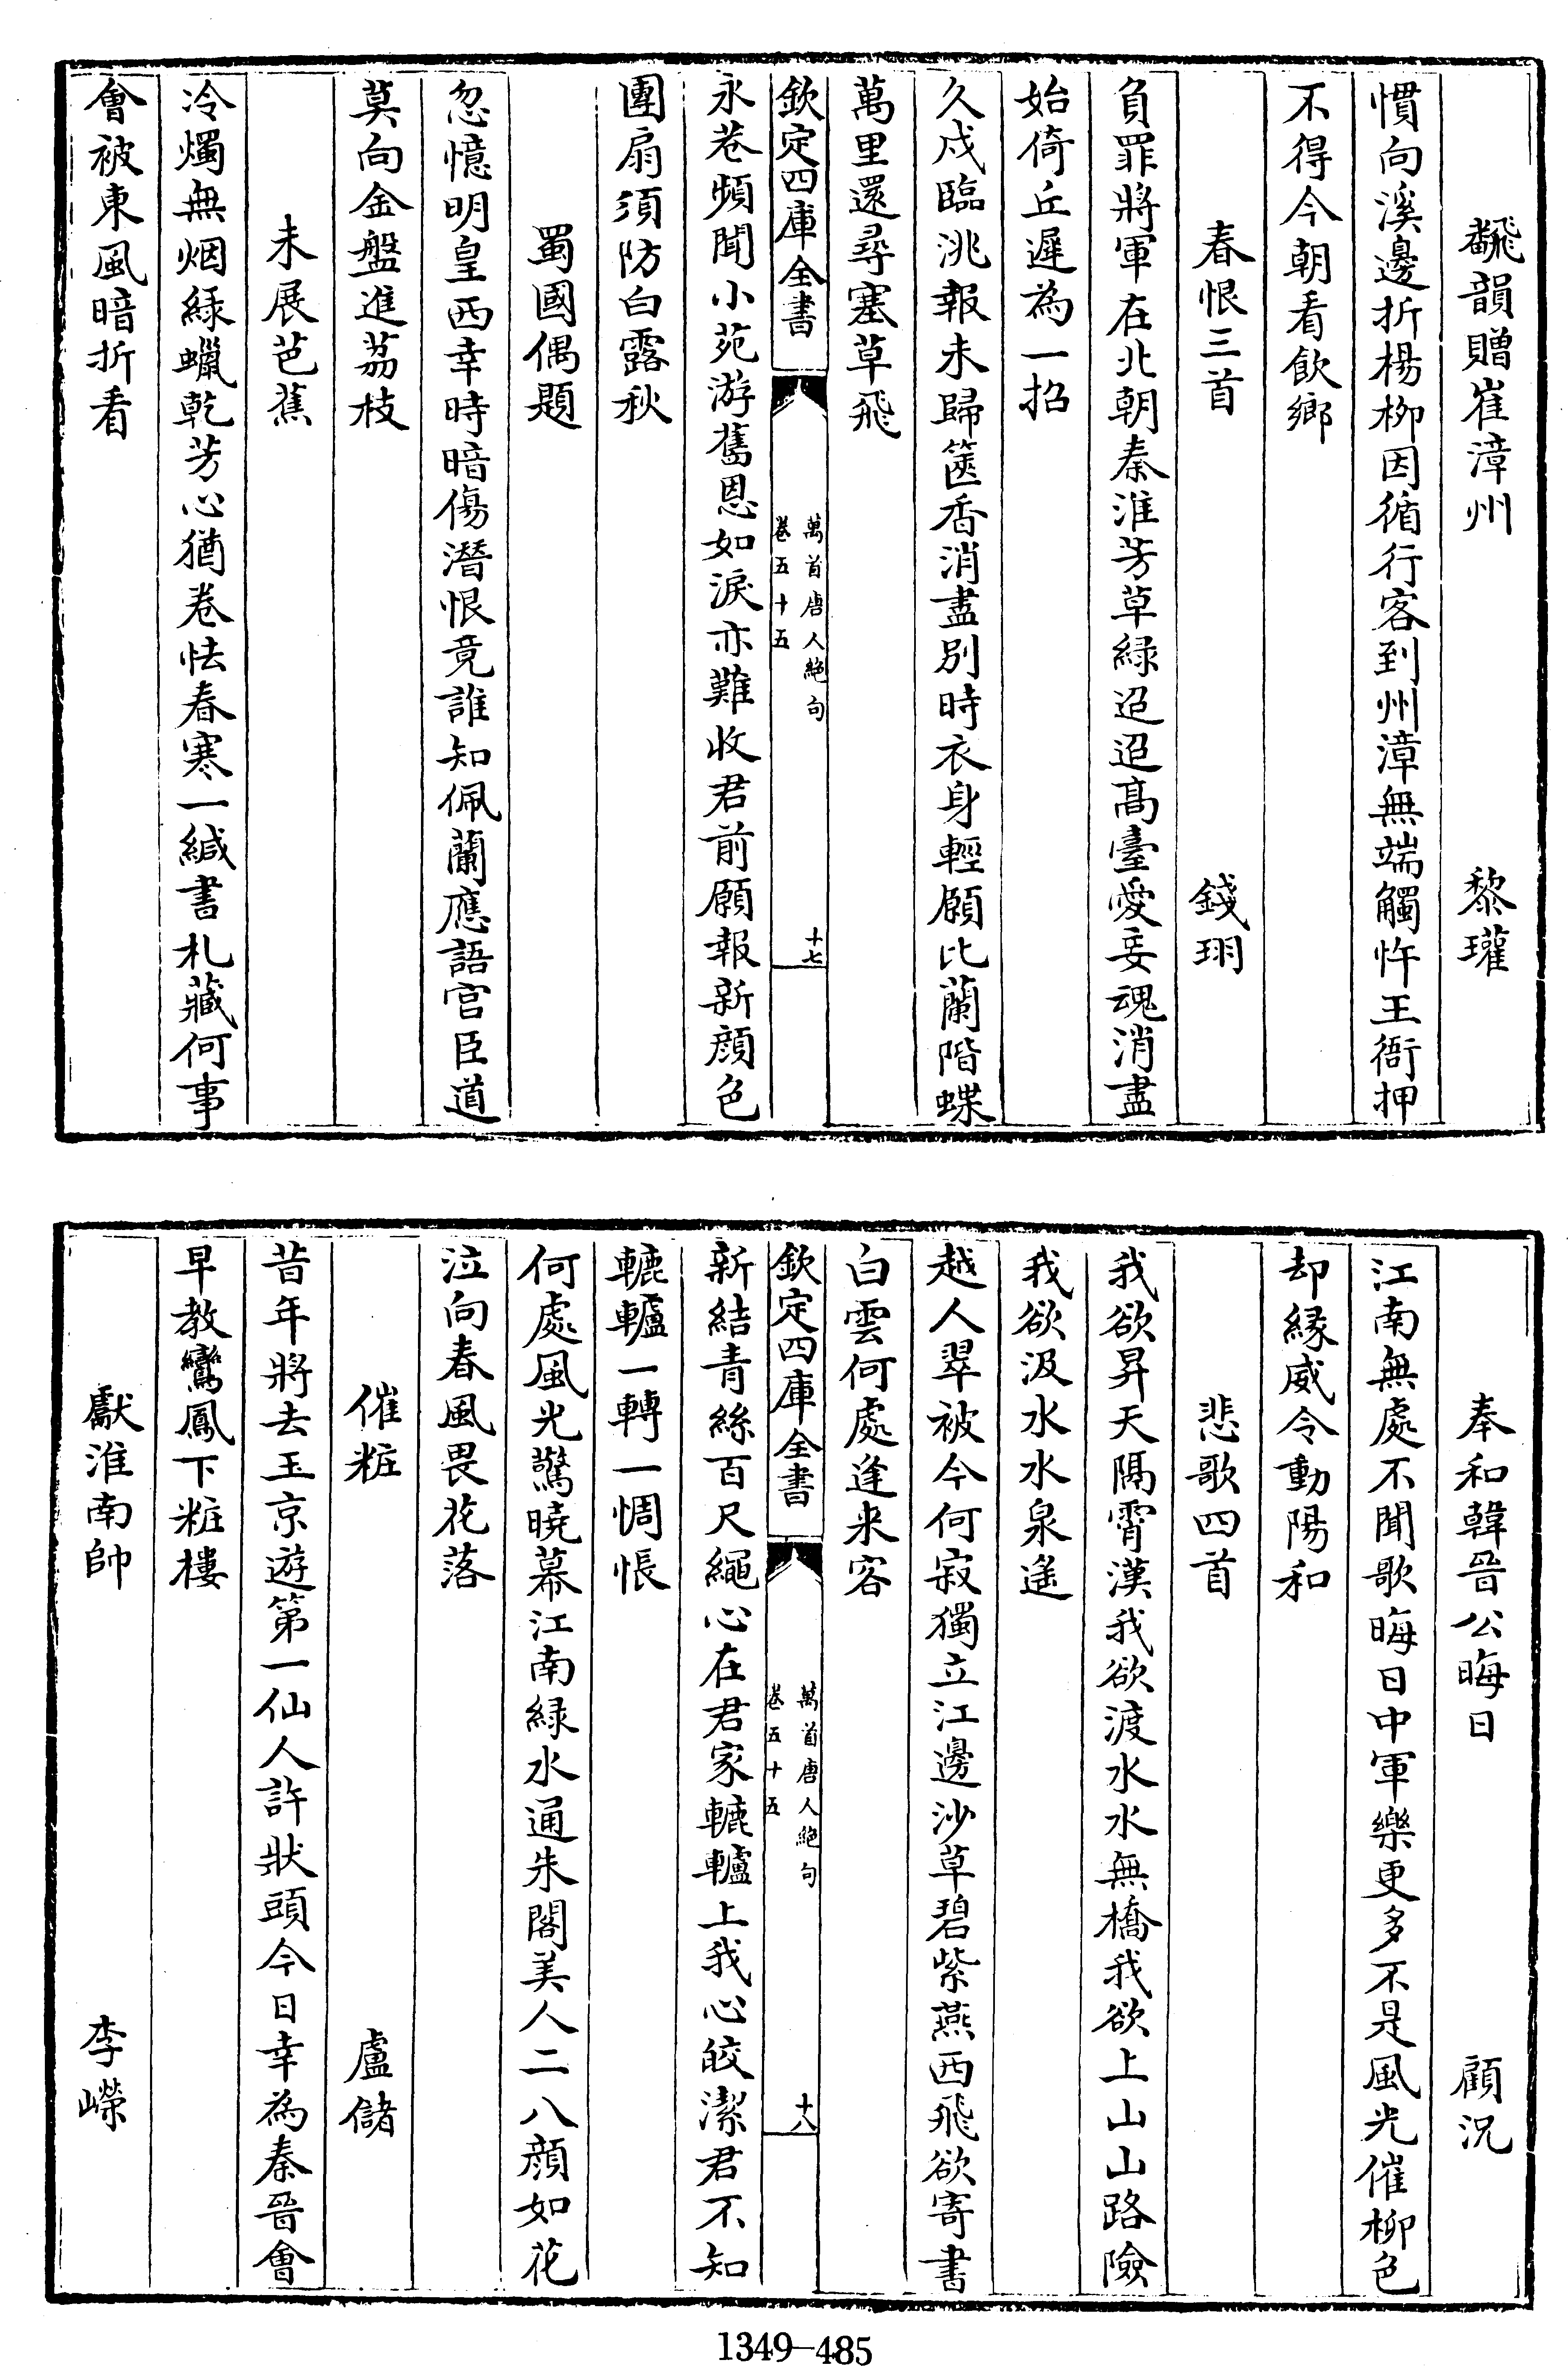 飜韻贈崔漳州　黎瓘
慣向溪邊折楊柳因循行客到州漳無端觸忤王衙押
不得今朝看飲鄉
春恨三首　錢珝
負罪將軍在北朝秦淮芳草緑迢迢髙臺愛妾魂消盡
始倚丘遲為一招
久戍臨洮報未歸篋香消盡别時衣身輕願比蘭階蝶
萬里還尋塞草飛
欽定四庫全書
萬首唐人絶句
卷五十五
十七
永巷頻聞小苑游舊恩如淚亦難收君前願報新顔色
團扇須防白露秋
蜀國偶題
忽憶明皇西幸時暗傷潛恨竟誰知佩蘭應語宫臣道
莫向金盤進荔枝
未展芭蕉
冷燭無烟緑蠟乾芳心猶卷怯春寒一緘書札藏何事
會被東風暗折看
奉和韓晉公晦日　顧況
江南無處不聞歌晦日中軍樂更多不是風光催柳色
却縁威令動陽和
悲歌四首
我欲昇天隔霄漢我欲渡水水無橋我欲上山山路險
我欲汲水水泉遙
越人翠被今何寂獨立江邊沙草碧紫燕西飛欲寄書
白雲何處逢来客
欽定四庫全書
萬首唐人絶句
卷五十五
十八
新結青絲百尺繩心在君家轆轤上我心皎潔君不知
轆轤一轉一惆悵
何處風光驚曉幕江南緑水通朱閣美人二八顔如花
泣向春風畏花落
催粧　盧儲
昔年將去玉京遊第一仙人許狀頭今日幸為秦晉會
早教鸞鳳下粧樓
獻淮南帥　李嶸
1349-485